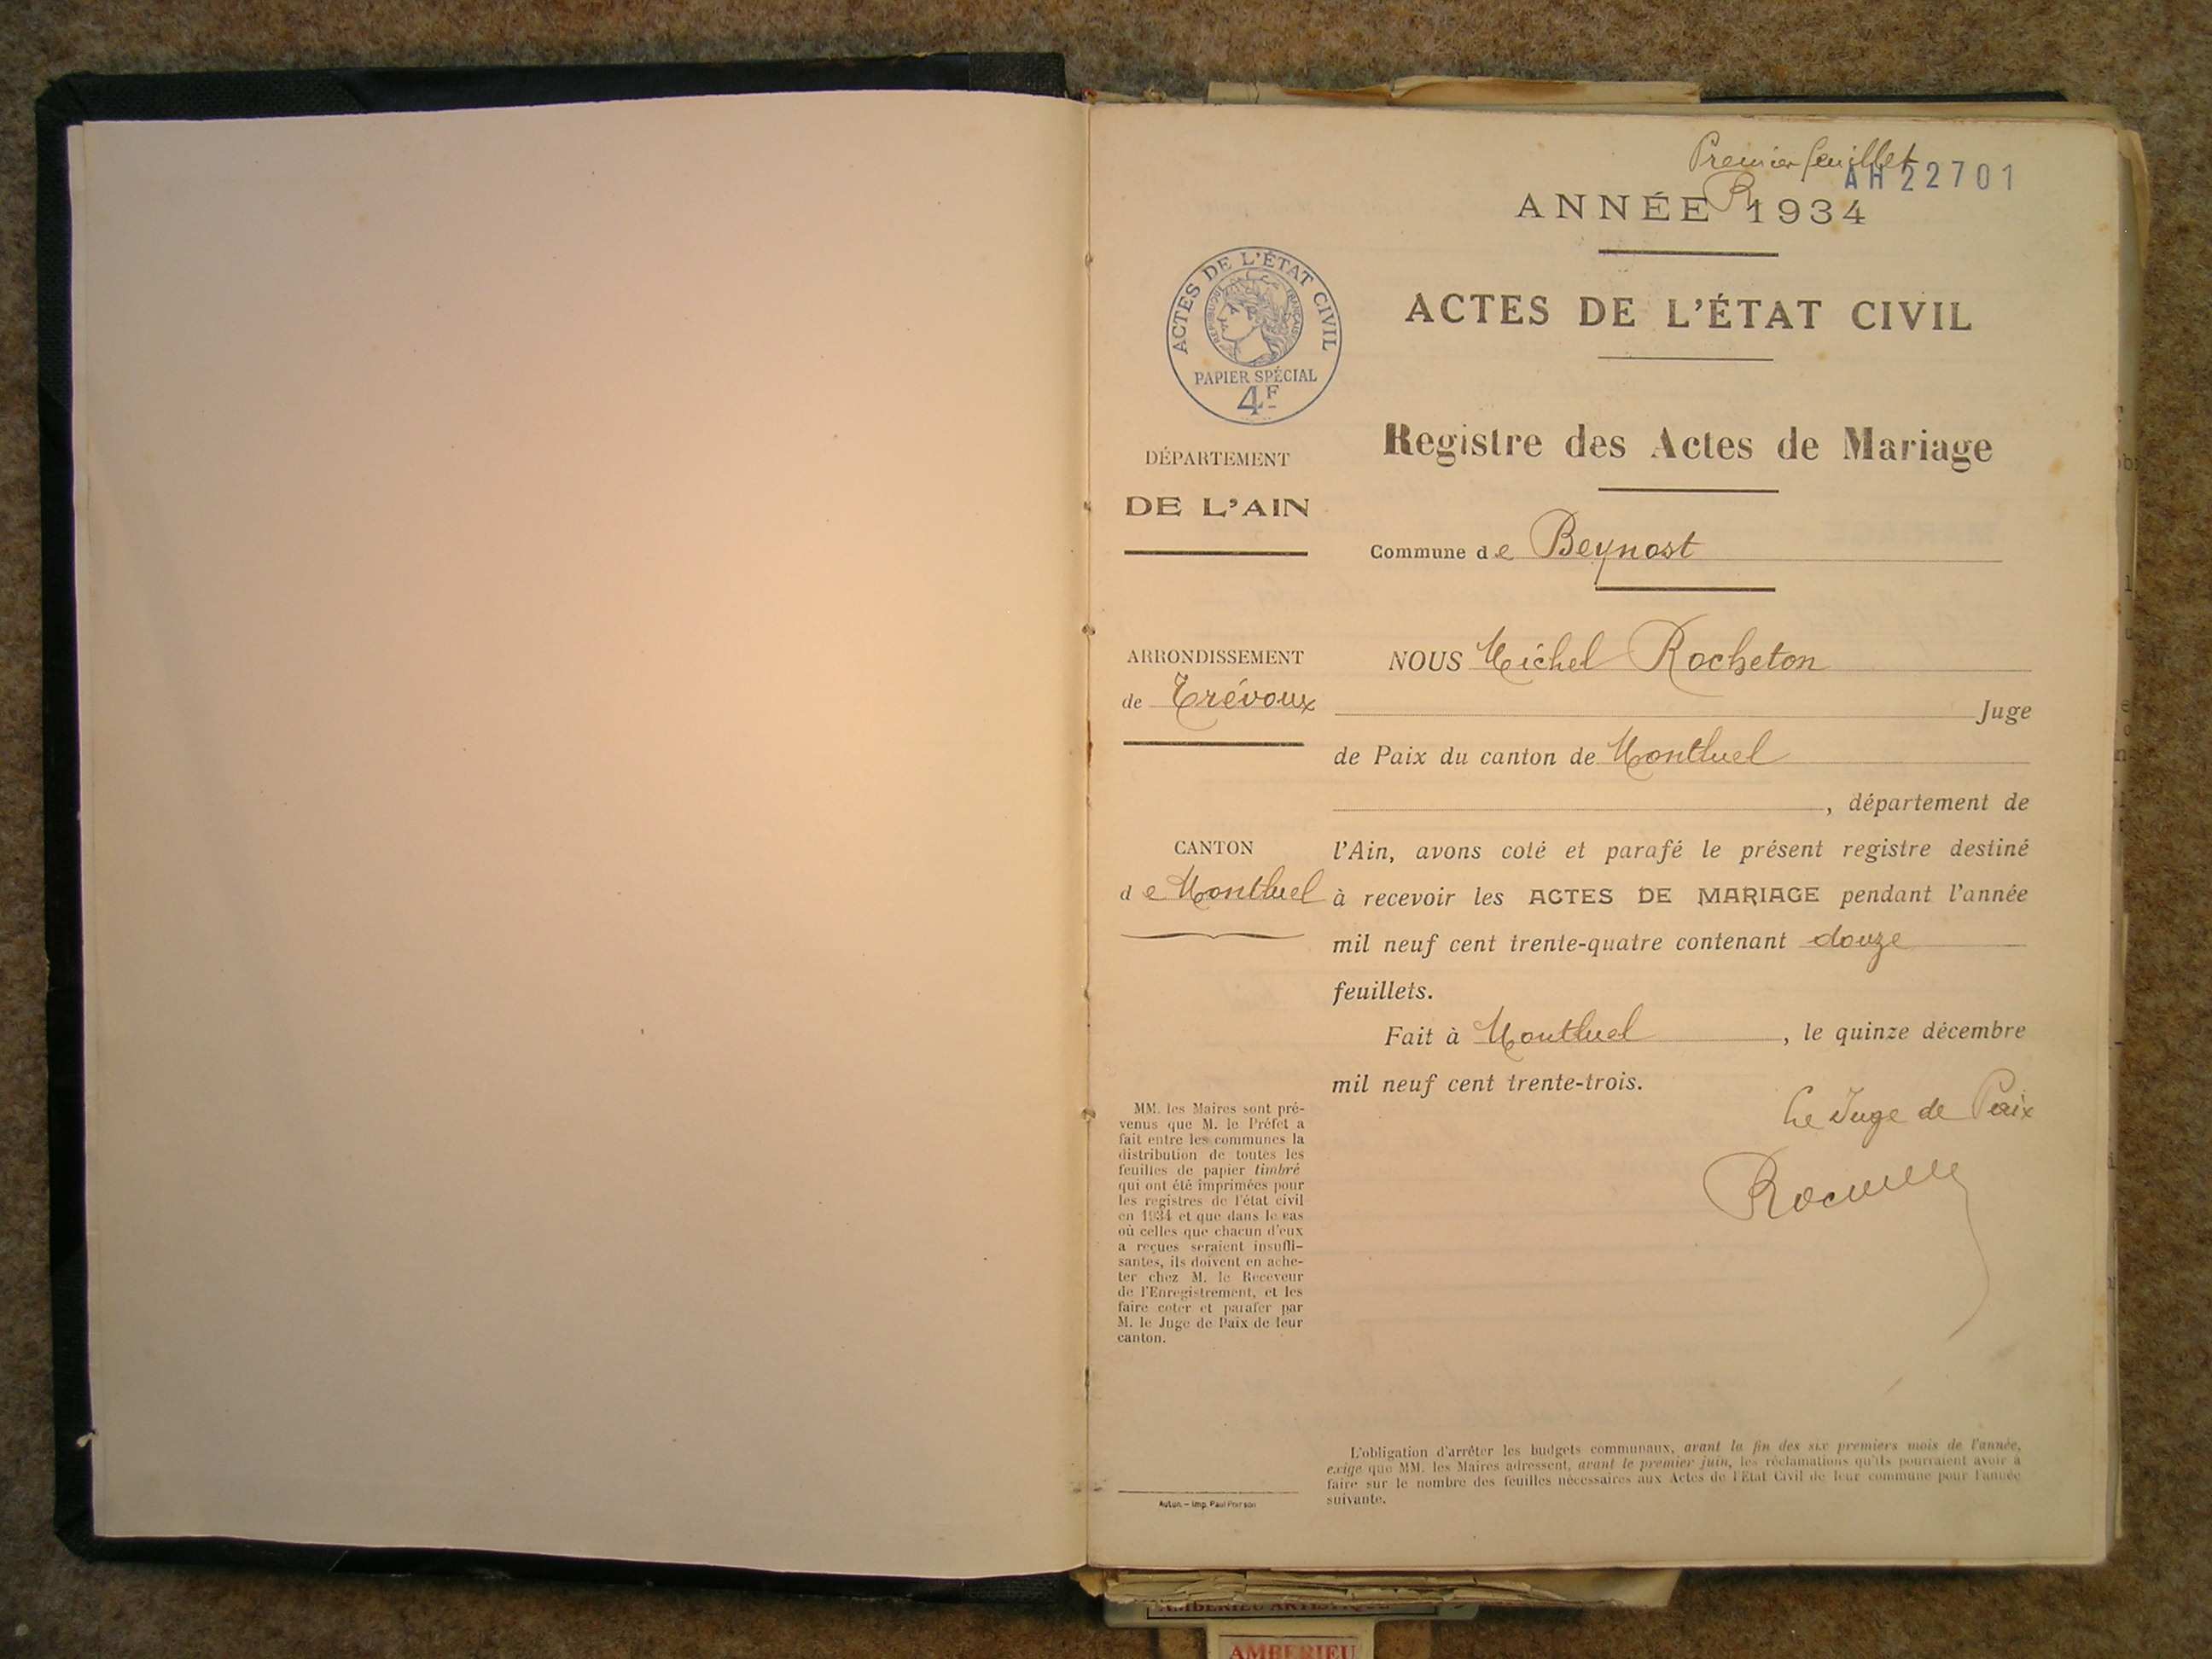 Premier feuillet
AH 22701
ANNÉE 1934
ACTES DE L'ÉTAT CIVIL
RÉPUBLIQUE FRANÇAISE
PAPIER SPÉCIAL
4F
ACTES DE L'ÉTAT CIVIL
Registre des Actes de Mariage
Commune de Beynost
DÉPARTEMENT
DE L'AIN
ARRONDISSEMENT
de Trévoux
CANTON
de Montluel
NOUS Michel Rocheton
Juge
de Paix du canton de Montluel
, département de
l'Ain, avons coté et parafé le présent registre destiné
à recevoir les ACTES DE MARIAGE pendant l'année
mil neuf cent trente-quatre contenant douze
feuillets.
Fait à Montluel, le quinze décembre
mil neuf cent trente-trois.
Le Juge de Paix
MM. les Maires sont pré-
venus que M. le Préfet a
fait entre les communes la
distribution de toutes les
feuilles de papier timbré
qui ont été imprimées pour
les registres de l'état civil
en 1934 et que dans le cas
où celles que chacun d'eux
a reçues seraient insuffi-
santes, ils doivent en ache-
ter chez M. le Receveur
de l'Enregistrement, et les
faire coter et parafer par
M. le Juge de Paix de leur
canton.
L'obligation d'arrêter les budgets communaux, avant la fin des six premiers mois de l'année,
exige que MM. les Maires adressent, avant le premier juin, les réclamations qu'ils pourraient avoir à
faire sur le nombre des feuilles nécessaires aux Actes de l'Etat Civil de leur commune pour l'année
suivante.
Autun. — Imp. Paul
AMBERIEU ARTISTIQUE
AMBERIEU